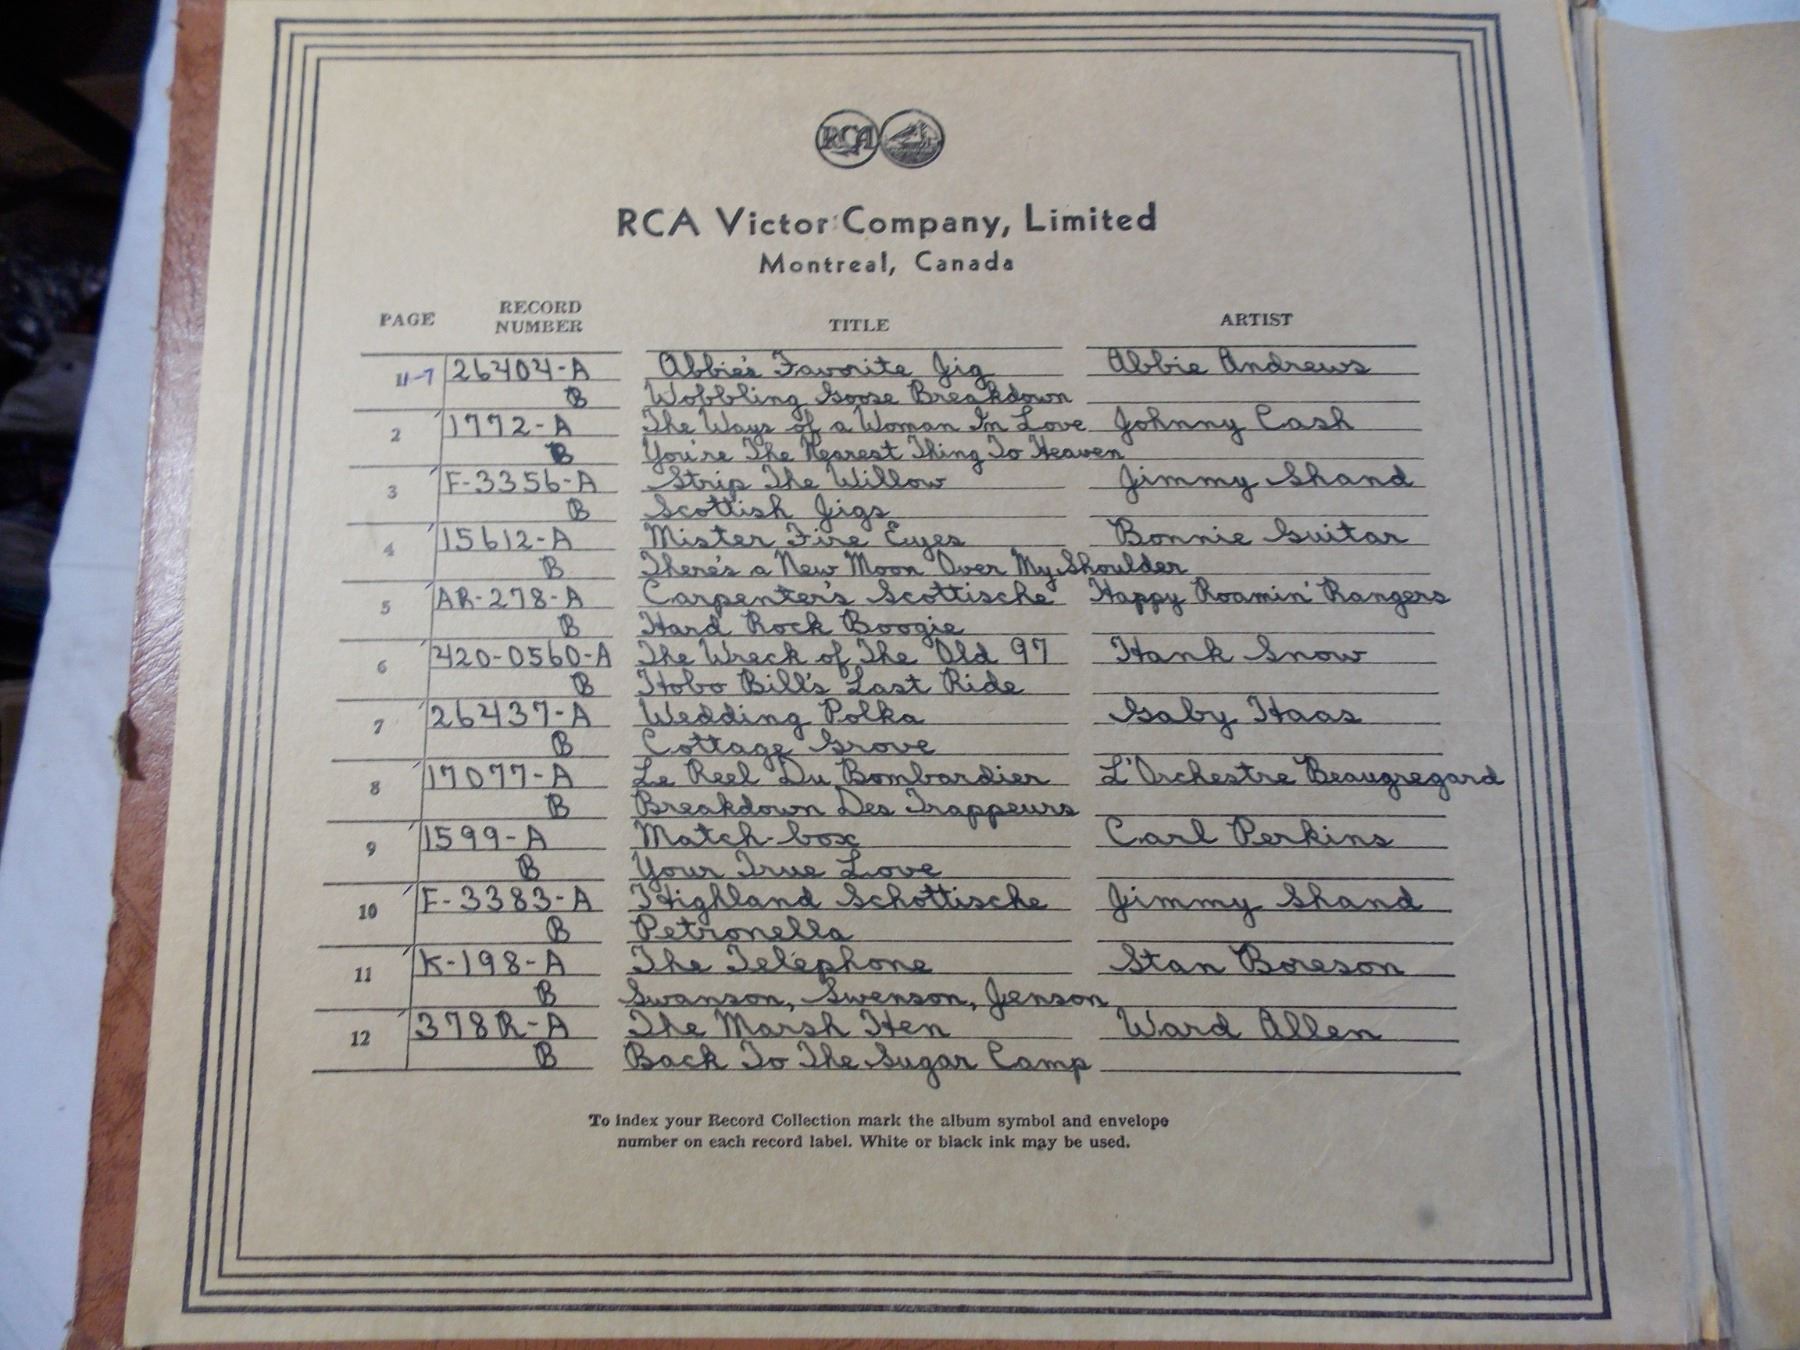 RCA
RCA Victor Company, Limited
Montreal, Canada
PAGE RECORD NUMBER TITLE ARTIST
11-7 26404-A Abbie's Favorite Jig Abbie Andrews
B Wobbling Goose Breakdown
2 1772-A The Ways of a Woman In Love Johnny Cash
B You're The Nearest Thing To Heaven
3 F-3356-A Strip The Willow Jimmy Shand
B Scottish Jigs
4 15612-A Mister Fire Euyes Bonnie Guitar
B There's a New Moon Over My Shoulder
5 AR-278-A Carpenter's Scottische Happy Roamin' Rangers
B Hard Rock Boogie
6 420-0560-A The Wreck of The Old 97 Hank Snow
B Hobo Bill's Last Ride
7 26437-A Wedding Polka Gaby Haas
B Cottage Grove
8 17077-A Le Reel Du Bombardier L'Orchestre Beaugregard
B Breakdown Des Trappeurs
9 1599-A Match-box Carl Perkins
B Your True Love
10 F-3383-A Highland Schottische Jimmy Shand
B Petronella
11 K-198-A The Telephone Stan Boreson
B Swanson, Swenson, Jenson
12 378R-A The Marsh Hen Ward Allen
B Back To The Sugar Camp
To index your Record Collection mark the album symbol and envelope
number on each record label. White or black ink may be used.